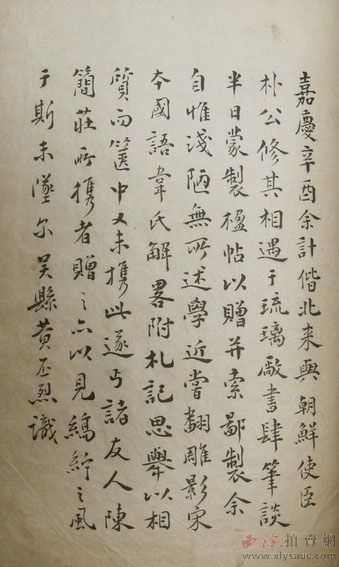 嘉慶辛酉余計偕北来與朝鮮使臣
朴公修其相遇于琉璃厰書肆筆談
半日蒙製楹帖以贈并索鄙製余
自惟淺陋無所述學近嘗翻雕影宋
本國語韋氏解畧附札記思舉以相
質而篋中又未携此遂丐諸友人陳
簡莊所携者贈之亦以見縞紵之風
于斯未墜尔吴縣黄丕烈識
西泠拍賣網
www.xlysauc.com